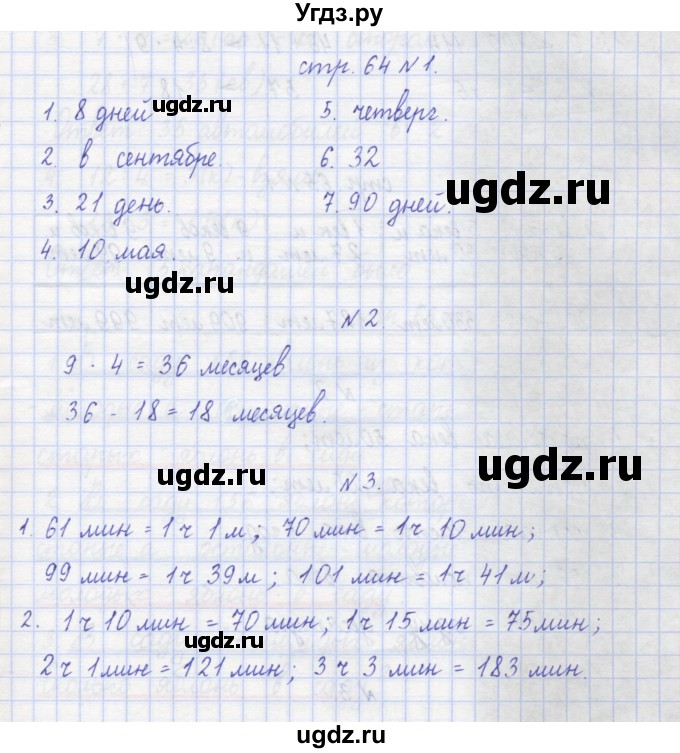 Угдз.ру
стр. 64 N 1.
1. 8 дней
2 в сентябре.
3. 21 день.
4. 10 мая.
5. четверг.
6. 32
7. 90 дней.
ugdz.ru
ugdz.ru
ugdz.ru
N 2.
9 · 4 = 36 месяцев
36 - 18 = 18 месяцев.
ugdz.ru
ugdz.ru
N 3.
1. 61 мин = 1 ч 1 м; 70 мин = 1 ч 10 мин;
ugdz.ru
99 мин = 1 ч 39 м; 101 мин = 1 ч 41 м;
2. 1 ч 10 мин = 70 мин; 1 ч 15 мин = 75 мин;
ugdz.ru
2 ч 1 мин = 121 мин; 3 ч 3 мин = 183 мин.
ugdz.ru